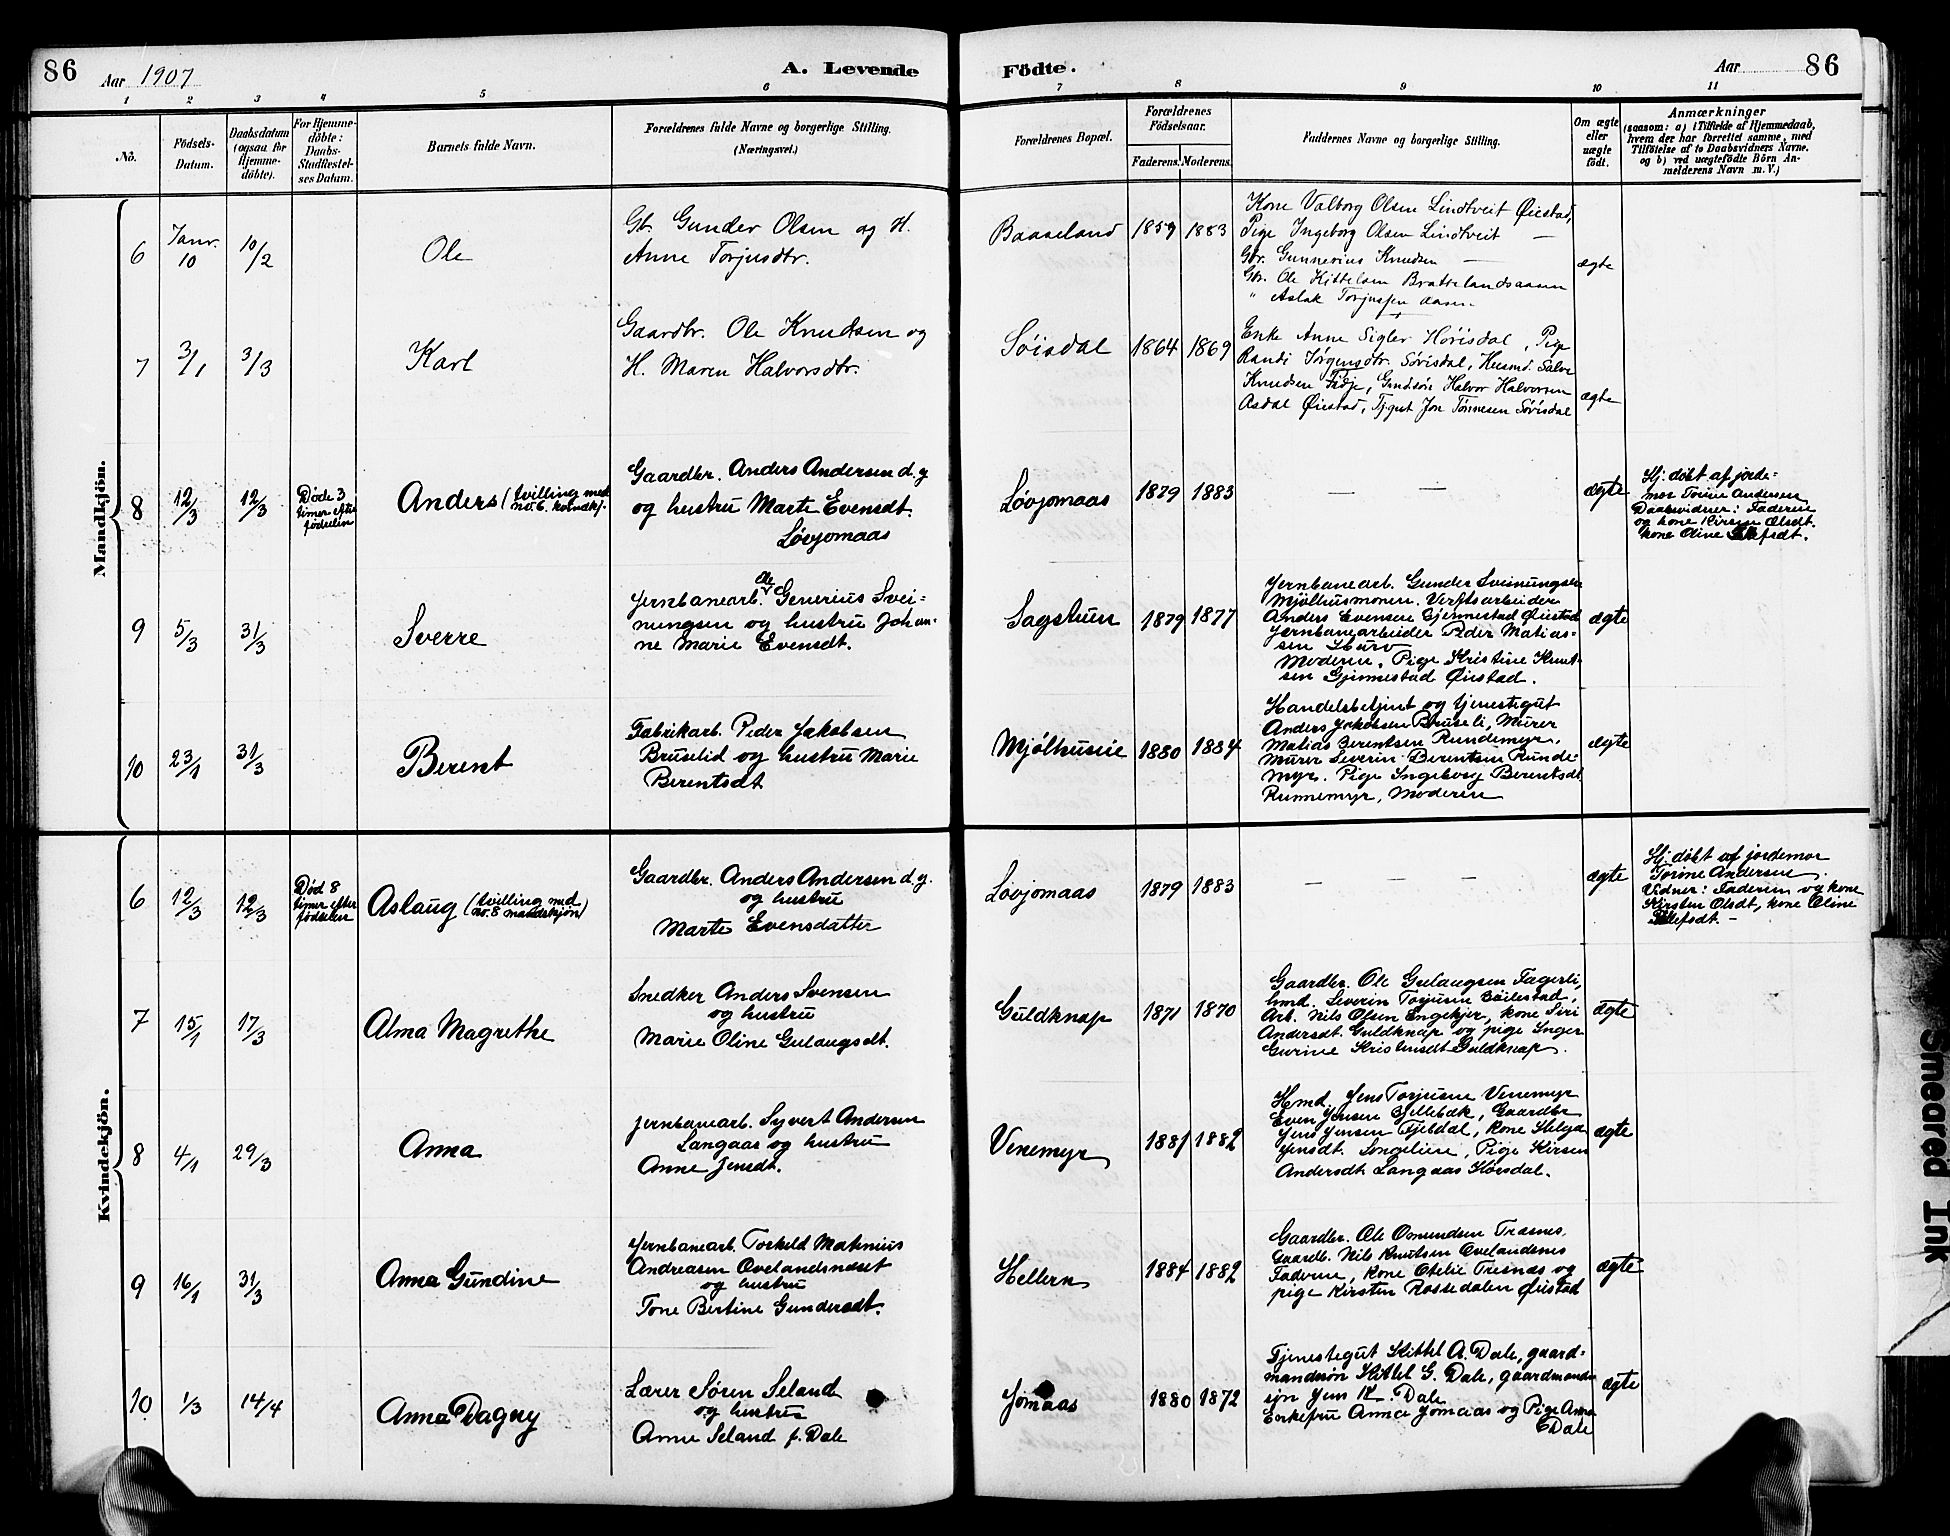 86
Aar 1907
A. Levende
Födte.
Aar
86
1 2 3 4 5 6 7 8 9 10 11
No.
Födsels-
Datum.
Daabsdatum
(ogsaa for
Hjemme-
döbte).
For Hjemme-
döbte:
Daabs-
Stadfæstel-
ses Datum.
Barnets fulde Navn.
Forældrenes fulde Navne og borgerlige Stilling.
(Næringsvei.)
Forældrenes Bopæl.
Forældrenes
Födselsaar.
Faderens.
Moderens.
Faddernes Navne og borgerlige Stilling.
Om ægte
eller
uægte
födt.
Anmærkninger
(saasom: a) i Tilfælde af Hjemmedaab,
hvem der har forrettet samme, med
Tilföielse af to Daabsvidners Navne.
og b) ved uægtefödte Börn An-
melderens Navn m. V.)
Mandkjön.
6
Janr.
10
10/2
Ole
Gb. Gunder Olsen og H.
Anne Torjusdtr.
Baaseland
1859
1883
Kone Valborg Olsen Lindtveit Øiestad,
Pige Ingeborg Olsen Lindtveit —
Gbr. Gunnerius Knudsen —
Gbr. Ole Kittelsen Brattelandsaasen
" Aslak Torjussen
ægte
7
3/1
3/3
Karl
Gaardbr. Ole Knudsen og
H. Maren Halvorsdtr.
Søisdal
1864
1869
Enke Anne Sigler Hörisdal, Pige
Randi Jørgensdtr. Sörisdal, Husmd. Salve
Knudsen Fidje, Halvor Halvorsen
Asdal Øiestad, Tjgut Jon Tønnesen Sörisdal
ægte
8
12/3
12/3
Døde 3
timer efter
fødselen
Anders (tvilling med
no. 6. kvindekj.
Gaardbr. Anders Andersen d.y
og hustru Marte Evensdt.
Løvjomaas
Løvjomaas
1879
1883
— —
ægte
Hj. døbt af jorde=
mor Torine Andersen
Daabsvidner: Faderen
og kone Kirsten Olsdt.
kone Oline
9
5/3
31/3
Sverre
Jernbanearb. Ole Generius Svei=
nungsen og hustru Johan=
ne Marie Evensdt.
Sagstuen
1879
1877
Jernbanearb. Gunder Sveinungsen
Mjølhusmonen. Verftsarbeider
Anders Evensen Gjennestad Øiestad
Jernbanearbeider Peder Matias=
sen
Moderen. Pige Kristine Knut=
sen Gjennestad Øiestad.
ægte
10
23/1
31/3
Berent
Fabrikarb. Peder Jakobsen
Bruselid og hustru Marie
Berentsdt
Mjølhusene
1880
1884
Handelsbetjent og tjenestegut
Anders Jakobsen Bruseli, Murer
Matias Berentsen Rundemyr.
Murer Severin Berentsen Runde
myr. Pige Ingeborg Berentsdt
Runnemyr, Moderen
ægte
Kvindekjön.
6
12/3
12/3
Død 8
timer efter
fødselen
Aslaug (tvilling med
no. 8 mandskjøn)
Gaardbr. Anders Andersen d.y.
og hustru
Marte Evensdatter
Løvjomaas
1879
1883
— —
ægte
Hj. døbt af jordemor
Torine Andersen.
Vidner: Faderen og kone
Kirsten Olsdt, kone Oline
7
15/1
17/3
Alma Magrethe
Snedker Anders Svensen
og hustru
Marie Oline Gulaugsdt.
Guldknap
1871
1870
Gaardbr. Ole Gulaugsen Fagerli,
hmd. Severin Torjusen Bøilestad,
Arb. Nils Olsen Engekjer, kone Siri
Andersdt. Guldknap og pige Inger
Gurine Kristensdt Guldknap.
ægte
8
4/1
29/3
Anna
Jernbanearb. Syvert Andersen
Langaas og hustru
Anne Jensdt.
Venemyr
1881
1882
Hmd. Jens Torjusen Venemyr
Even Jensen Gjellebæk, Gaardbr
Jens Jensen Fjeldal, kone Helga
Jensdt. Songelien, Pige Kirsten
Andersdt. Langaas Hørsdal.
ægte
9
16/1
31/3
Anna Gundine
Jernbanearb. Torkeld Matenius
Andreasen Ovelandsneset
og hustru
Tone Bertine Gundersdt.
Hellern
1884
1882
Gaardbr. Ole Osmundsen Træsnes,
Gaardb. Nils Knutsen Ovelandsnes
Faderen, kone Otelie Tresnæs og
pige Kirsten Rossedalen Øiestad
ægte
10
1/3
14/4
Anna Dagny
Lærer Søren Seland
og hustru
Anne Seland f. Dale
Jomaas
1880
1872
Tjenestegut Kittel A. Dale, gaard=
mandssøn Kittel G. Dale, gaardmands
søn Jens K. Dale
Enkefru Anna Jomaas og Pige Anna
Dale
ægte
Smeared Ink